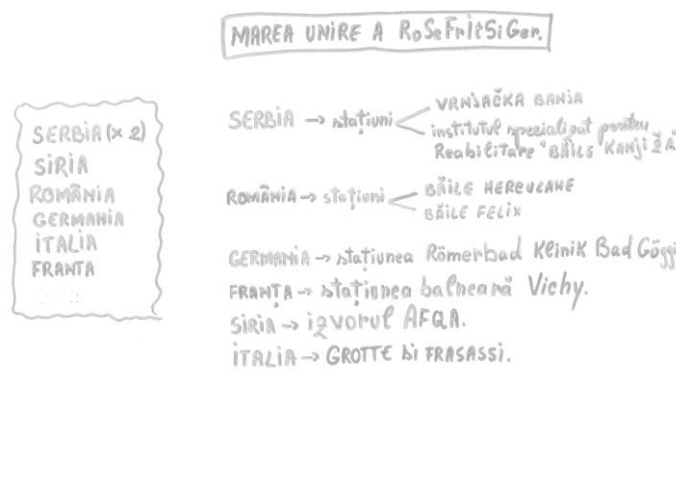 MAREA UNIRE A RoSeFritSiGer.
SERBIA (x 2)
SIRIA
ROMÂNIA
GERMANIA
ITALIA
FRANTA
SERBIA → stațiuni
VRNJAČKA BANJA
institutul specializat pentru
Reabilitare "BĂILS KANJI
ROMÂNIA → stațiuni
BĂILE HERCULANE
BĂILE FELIX
GERMANIA → stațiunea Römerbad Klinik Bad Göggi
FRANȚA → stațiunea balneară Vichy.
SIRIA → izvorul AFQA.
ITALIA → GROTTE di FRASASSI.